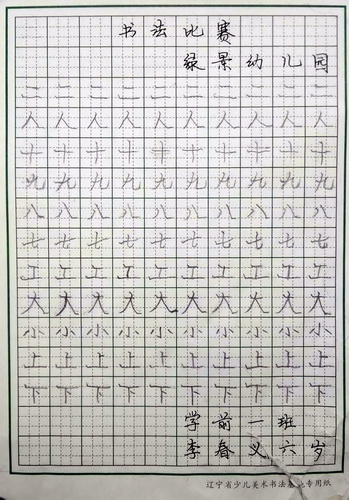 书法比赛
绿景幼儿园
二二二二二二二二二
人人人人人人人人人
十十十十十十十十十
九九九九九九九九九
八八八八八八八八八
七七七七七七七七七
工工工工工工工工工
大大大大大大大大大
小小小小小小小小小
上上上上上上上上上
下下下下下下下下下
学前一班
李春义六岁
辽宁省少儿美术书法 专用纸